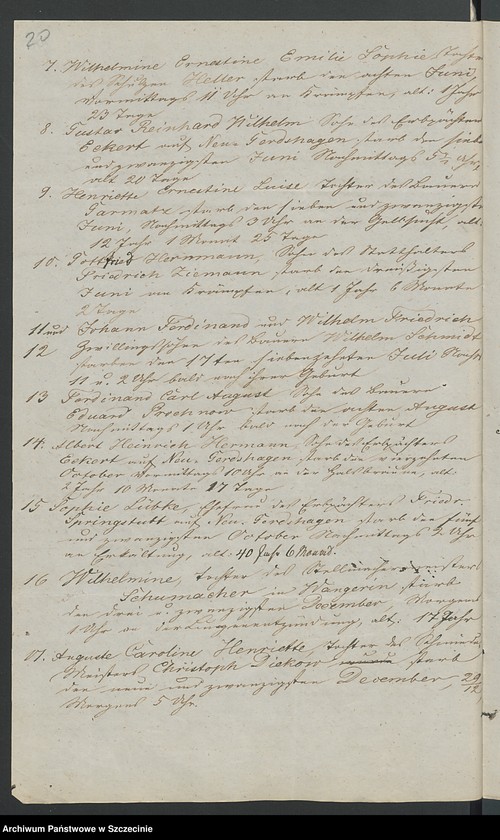 20
7. Wilhelmine Ernestine Emilie Sophie, Tochter
des Schulzen Heller starb den achten Juni,
Vormittags 11 Uhr an Krämpfen, alt: 1 Jahr
23 Tage
8. Gustav Reinhard Wilhelm Sohn des Erbpächters
Eckert auf Neu-Gerdshagen starb den sieben
undzwanzigsten Juni Nachmittags 5½ Uhr,
alt 20 Tage
9. Henriette Ernestine Luise, Tochter des Bauern
Garmatz starb den sieben und zwanzigsten
Juni, Nachmittags 3 Uhr an der Gelbsucht, alt:
12 Jahr 1 Monat 25 Tage
10. Gottfried Herrmann, Sohn des Statthalters
Friedrich Ziemann starb den dreißigsten
Juni an Krämpfen, alt 1 Jahr 6 Monate
2 Tage
11 und Johann Ferdinand und Wilhelm Friedrich
12 Zwillingssöhne des Bauern Wilhelm Schmidt
starben den 17ten siebenzehnten Juli Nachts
11 u. 2 Uhr bald nach ihrer Geburt
13 Ferdinand Carl August Sohn des Bauern
Eduard starb den achten August
Nachmittags 1 Uhr bald nach der Geburt
14. Albert Heinrich Hermann, Sohn des Erbpächters
Eckert auf Neu-Gerdshagen starb den vierzehnten
October Vormittags 10 Uhr an der Halsbräune, alt:
2 Jahr 10 Monate 17 Tage
15 Sophie Lübke, Ehefrau des Erbpächters Friedr.
Springstutt auf Neu-Gerdshagen starb den fünf
und zwanzigsten October Nachmittags 2 Uhr
an Erkältung, alt: 40 Jahr 6 Monat.
16 Wilhelmine, Tochter des Stellmachermeisters
Schumacher in Wangerin starb
den drei u. zwanzigsten December, Morgens
1 Uhr an der Lungenentzündung, alt: 17 Jahr
17. Auguste Caroline Henriette, Tochter des Schmiede
Meisters Christoph Dickow starb
den neun und zwanzigsten December, 29/12
Morgens 5 Uhr.
Archiwum Państwowe w Szczecinie